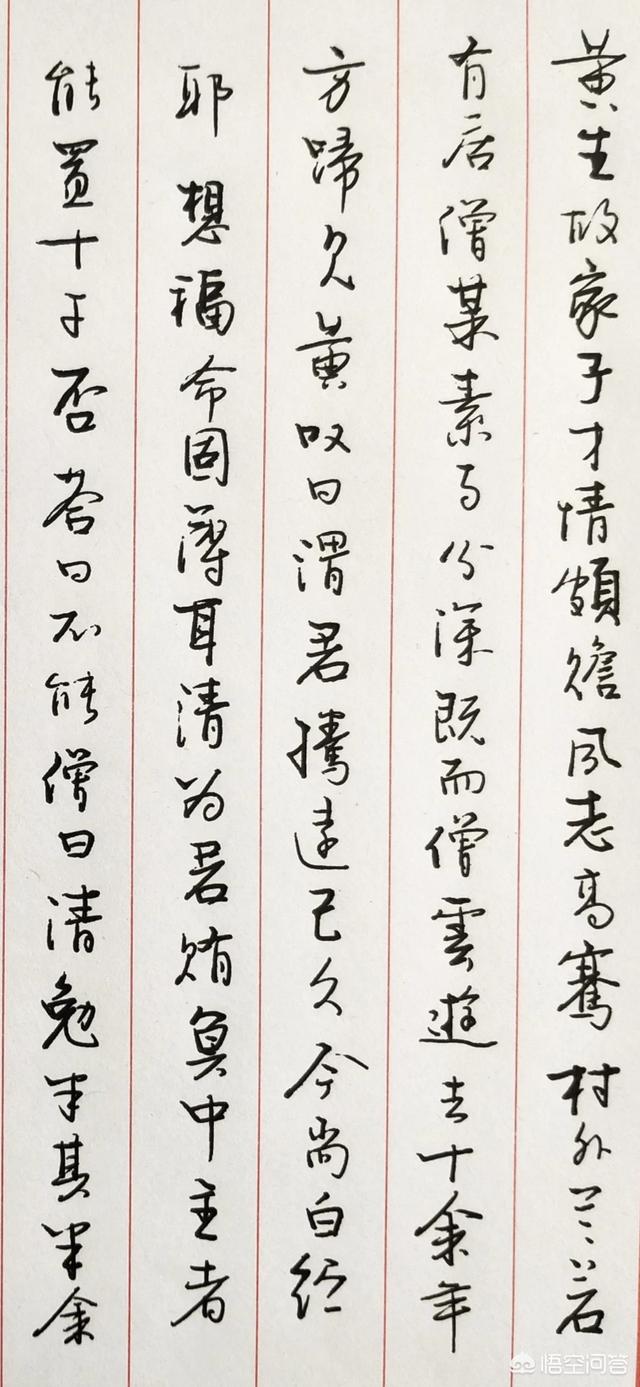 黄生故家子才情颇赡夙志高骞村外兰若
有居僧某素与分深既而僧雲遊去十余年
方归见黄叹曰谓君腾达已久今尚白纻
耶想福命固薄耳请为君贿冥中主者
能置十千否答曰不能僧曰请勉半其半余
悟空问答